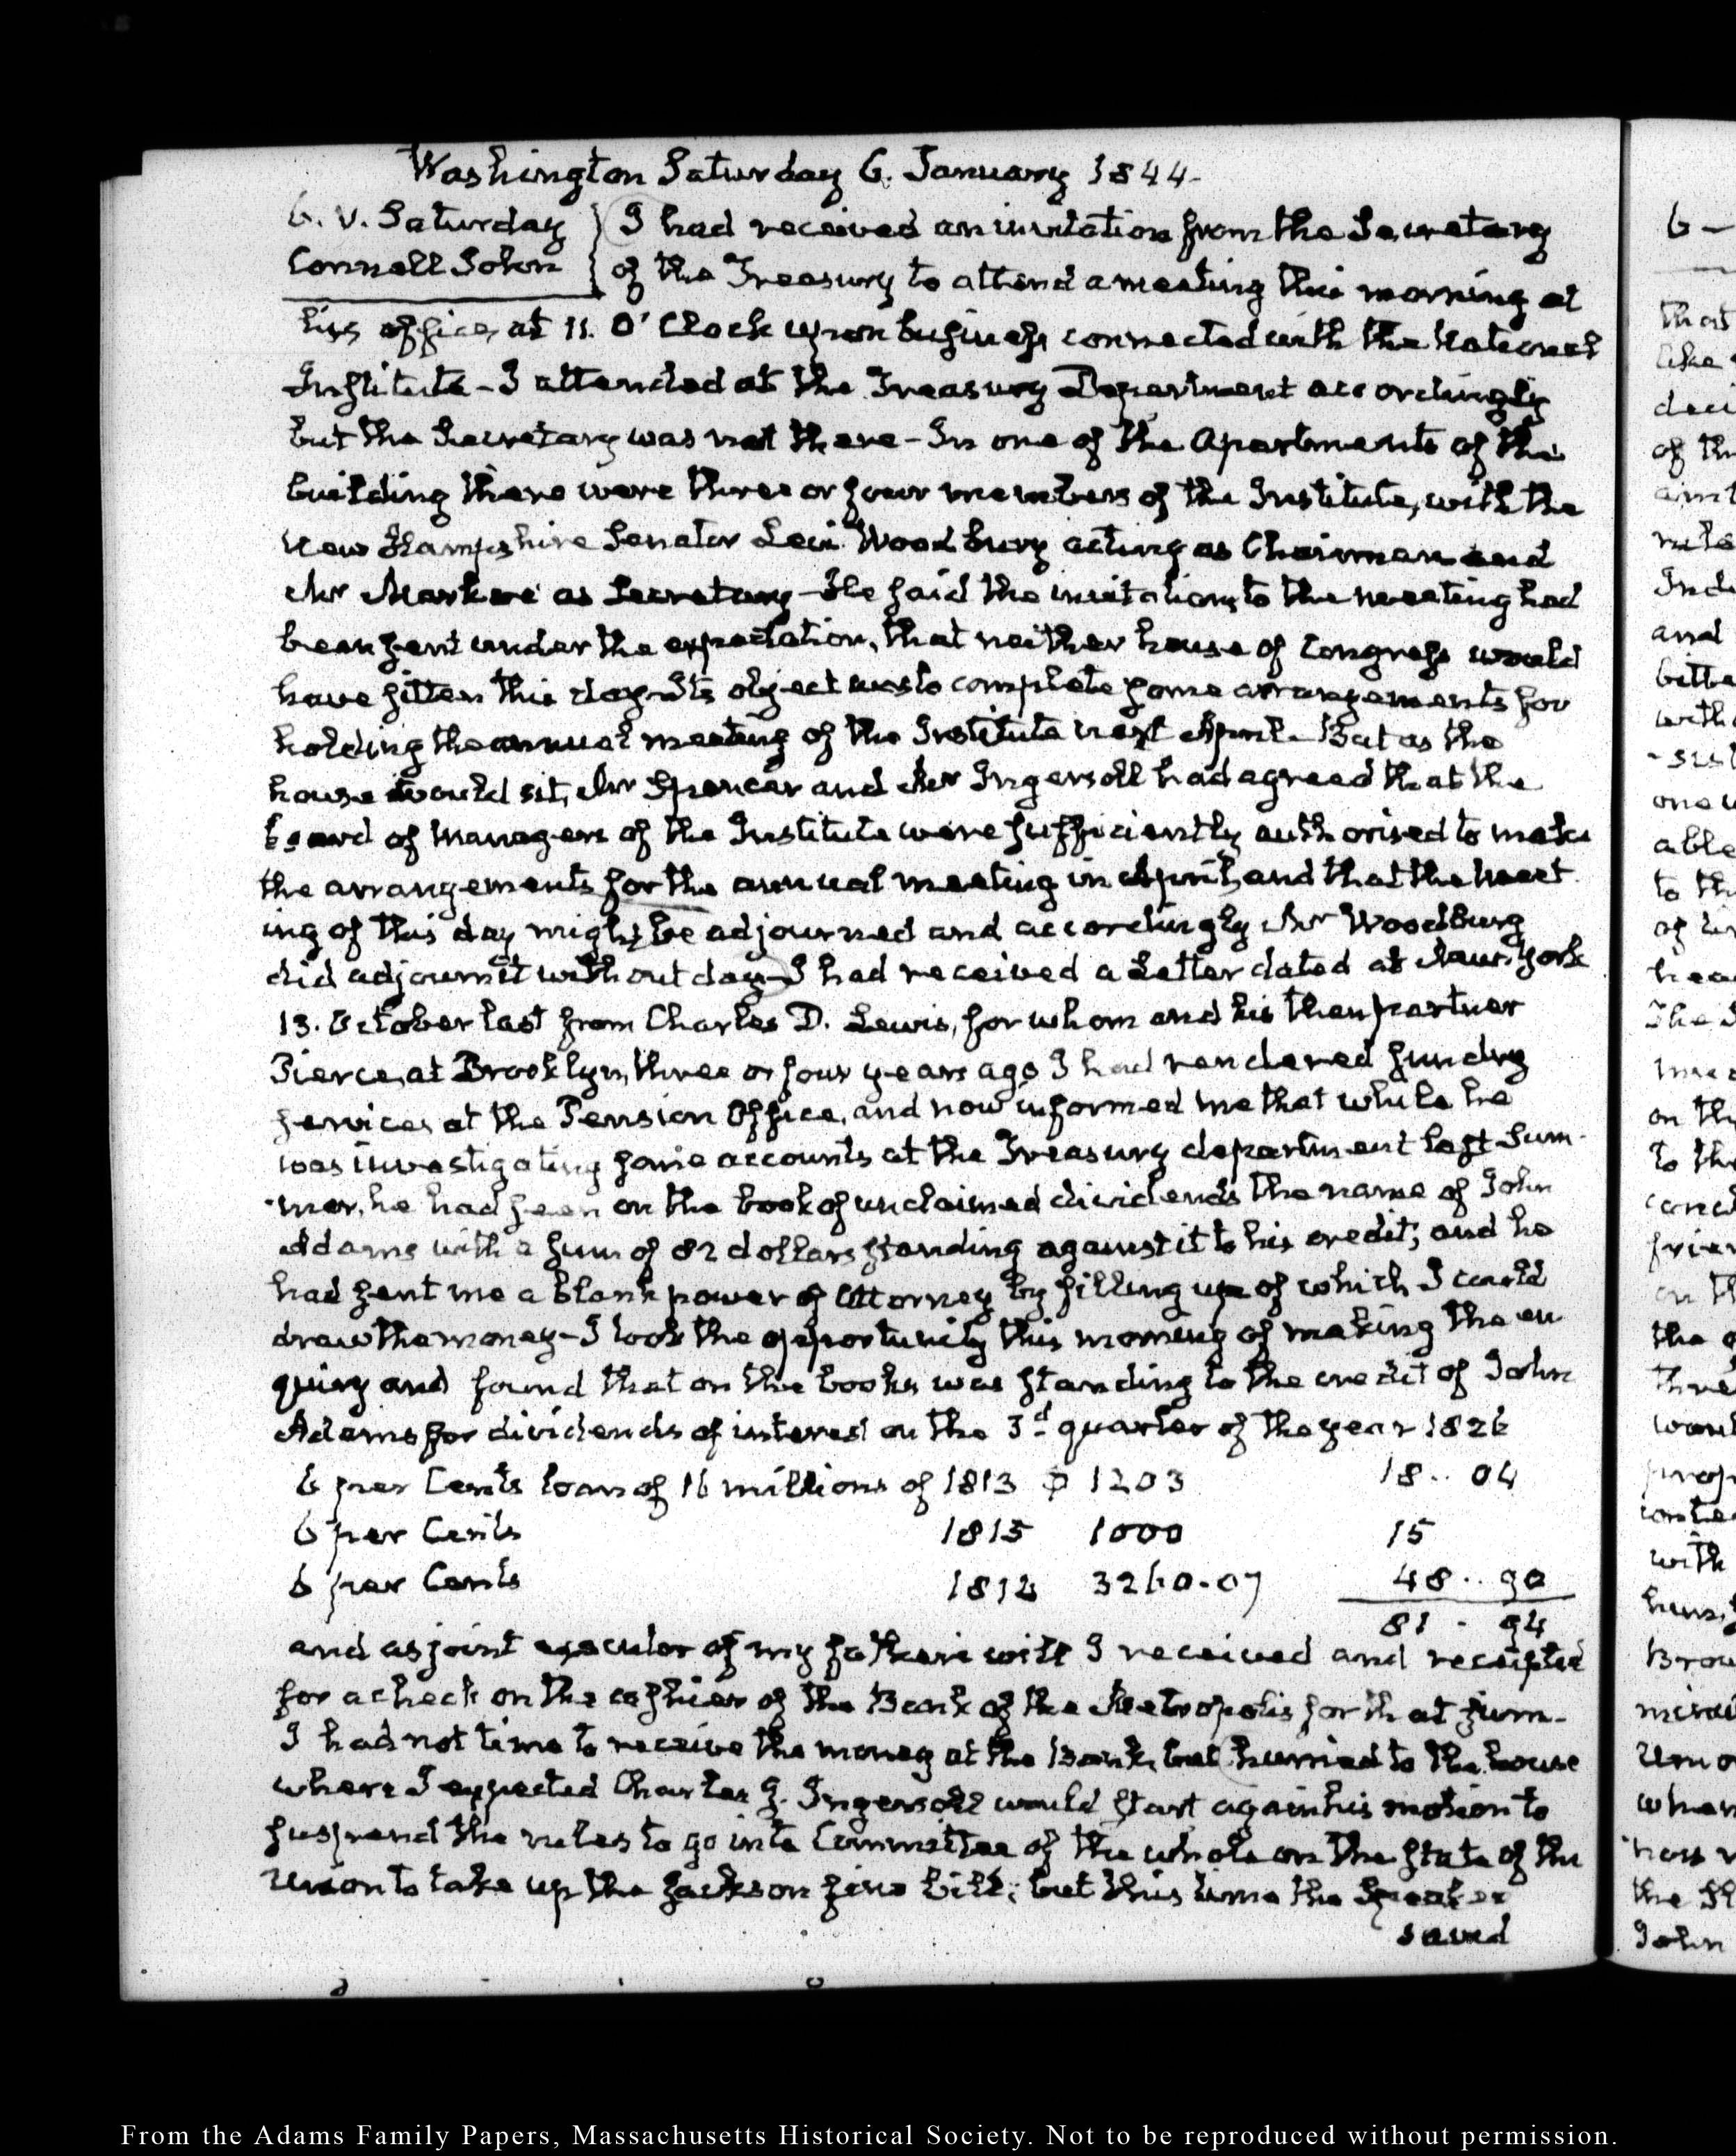 Washington Saturday 6. January 1844-
6. V. Saturday } I had received an invitation from the Secretary
Connell John } of the Treasury to attend a meeting this morning at
his office, at 11. O'Clock upon business connected with the National
Institute - I attended at the Treasury Department accordingly
but the Secretary was not there - In one of the Apartments of the
building there were three or four members of the Institute, with the
New Hampshire Senator Levi Woodbury acting as Chairman and
Mr Markoe as Secretary - He said the invitations to the meeting had
been sent under the expectation, that neither house of Congress would
have sitten this day - Its object was to complete some arrangements for
holding the annual meeting of the Institute next April - But as the
house would sit, Mr Spencer and Mr Ingersoll had agreed that the
board of Managers of the Institute were sufficiently authorised to make
the arrangements for the annual meeting in April, and that the meet
ing of this day might be adjourned and accordingly Mr Woodbury
did adjourn it without day - I had received a Letter dated at New-York
13. October last from Charles D. Lewis, for whom and his then partner
Pierce, at Brooklyn, three or four years ago I had rendered sundry
services at the Pension Office, and now informed me that while he
was investigating some accounts at the Treasury department last Sum-
-mer, he had seen on the book of unclaimed dividends the name of John
Adams with a sum of 82 dollars standing against it to his credit; and he
had sent me a blank power of Attorney by filling up of which I could
draw the money - I took the opportunity this morning of making the en
quiry and found that on the books was standing to the credit of John
Adams for dividends of interest on the 3d quarter of the year 1826
6 per Cents loan of 16 millions of 1813 $ 1203 18.. 04
6 per Cents 1815 1000 15
6 per Cents 1812 3260-07 48.. 90
81 - 94
and as joint executor of my father's will I received and receipted
for a check on the cashier of the Bank of the Metropolis for that sum -
I had not time to receive the money at the Bank, but hurried to the house
where I expected Charles J. Ingersoll would start again his motion to
suspend the rules to go into Committee of the whole on the state of the
Union to take up the Jackson fine bill; but this time the Speaker
saved
From the Adams Family Papers, Massachusetts Historical Society. Not to be reproduced without permission.